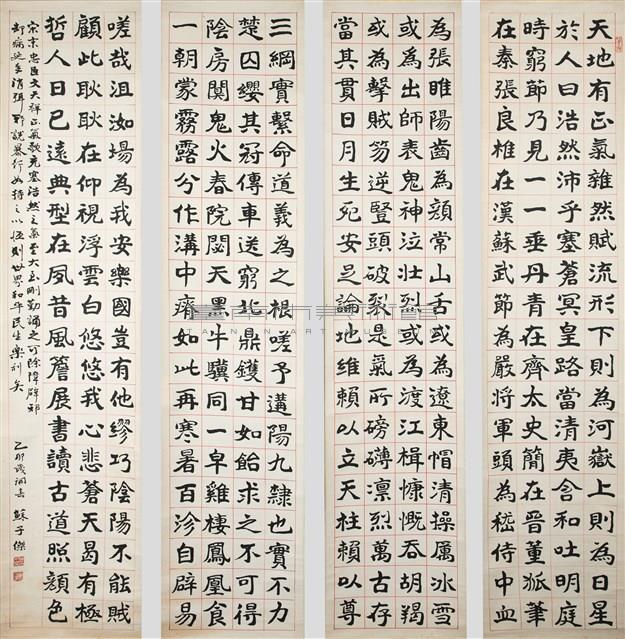 天地有正氣雜然賦流形下則為河嶽上則為日星
於人曰浩然沛乎塞蒼冥皇路當清夷含和吐明庭
時窮節乃見一一垂丹青在齊太史簡在晉董狐筆
在秦張良椎在漢蘇武節為嚴將軍頭為嵇侍中血
為張睢陽齒為顏常山舌或為遼東帽清操厲冰雪
或為出師表鬼神泣壯烈或為渡江楫慷慨吞胡羯
或為擊賊笏逆豎頭破裂是氣所磅礴凜烈萬古存
當其貫日月生死安足論地維賴以立天柱賴以尊
三綱實繫命道義為之根嗟予遘陽九隸也實不力
楚囚纓其冠傳車送窮北鼎鑊甘如飴求之不可得
陰房闃鬼火春院閟天黑牛驥同一皁雞棲鳳凰食
一朝蒙霧露分作溝中瘠如此再寒暑百沴自辟易
嗟哉沮洳場為我安樂國豈有他繆巧陰陽不能賊
顧此耿耿在仰視浮雲白悠悠我心悲蒼天曷有極
哲人日已遠典型在夙昔風簷展書讀古道照顏色
宋末忠臣文天祥正氣歌充塞浩然之氣至大至剛勤誦之可除障辟邪
却病延年消弭邪說暴行如持之以恆則世界和平民生樂利矣
乙卯歲 蘇子傑